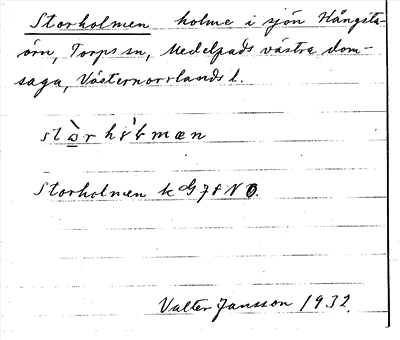 Storholmen holme i sjön Hångsta-
örn, Torps sn, Medelpads västra dom-
saga, Västernorrlands l.
Storholmen k
Valter Jansson 1932.